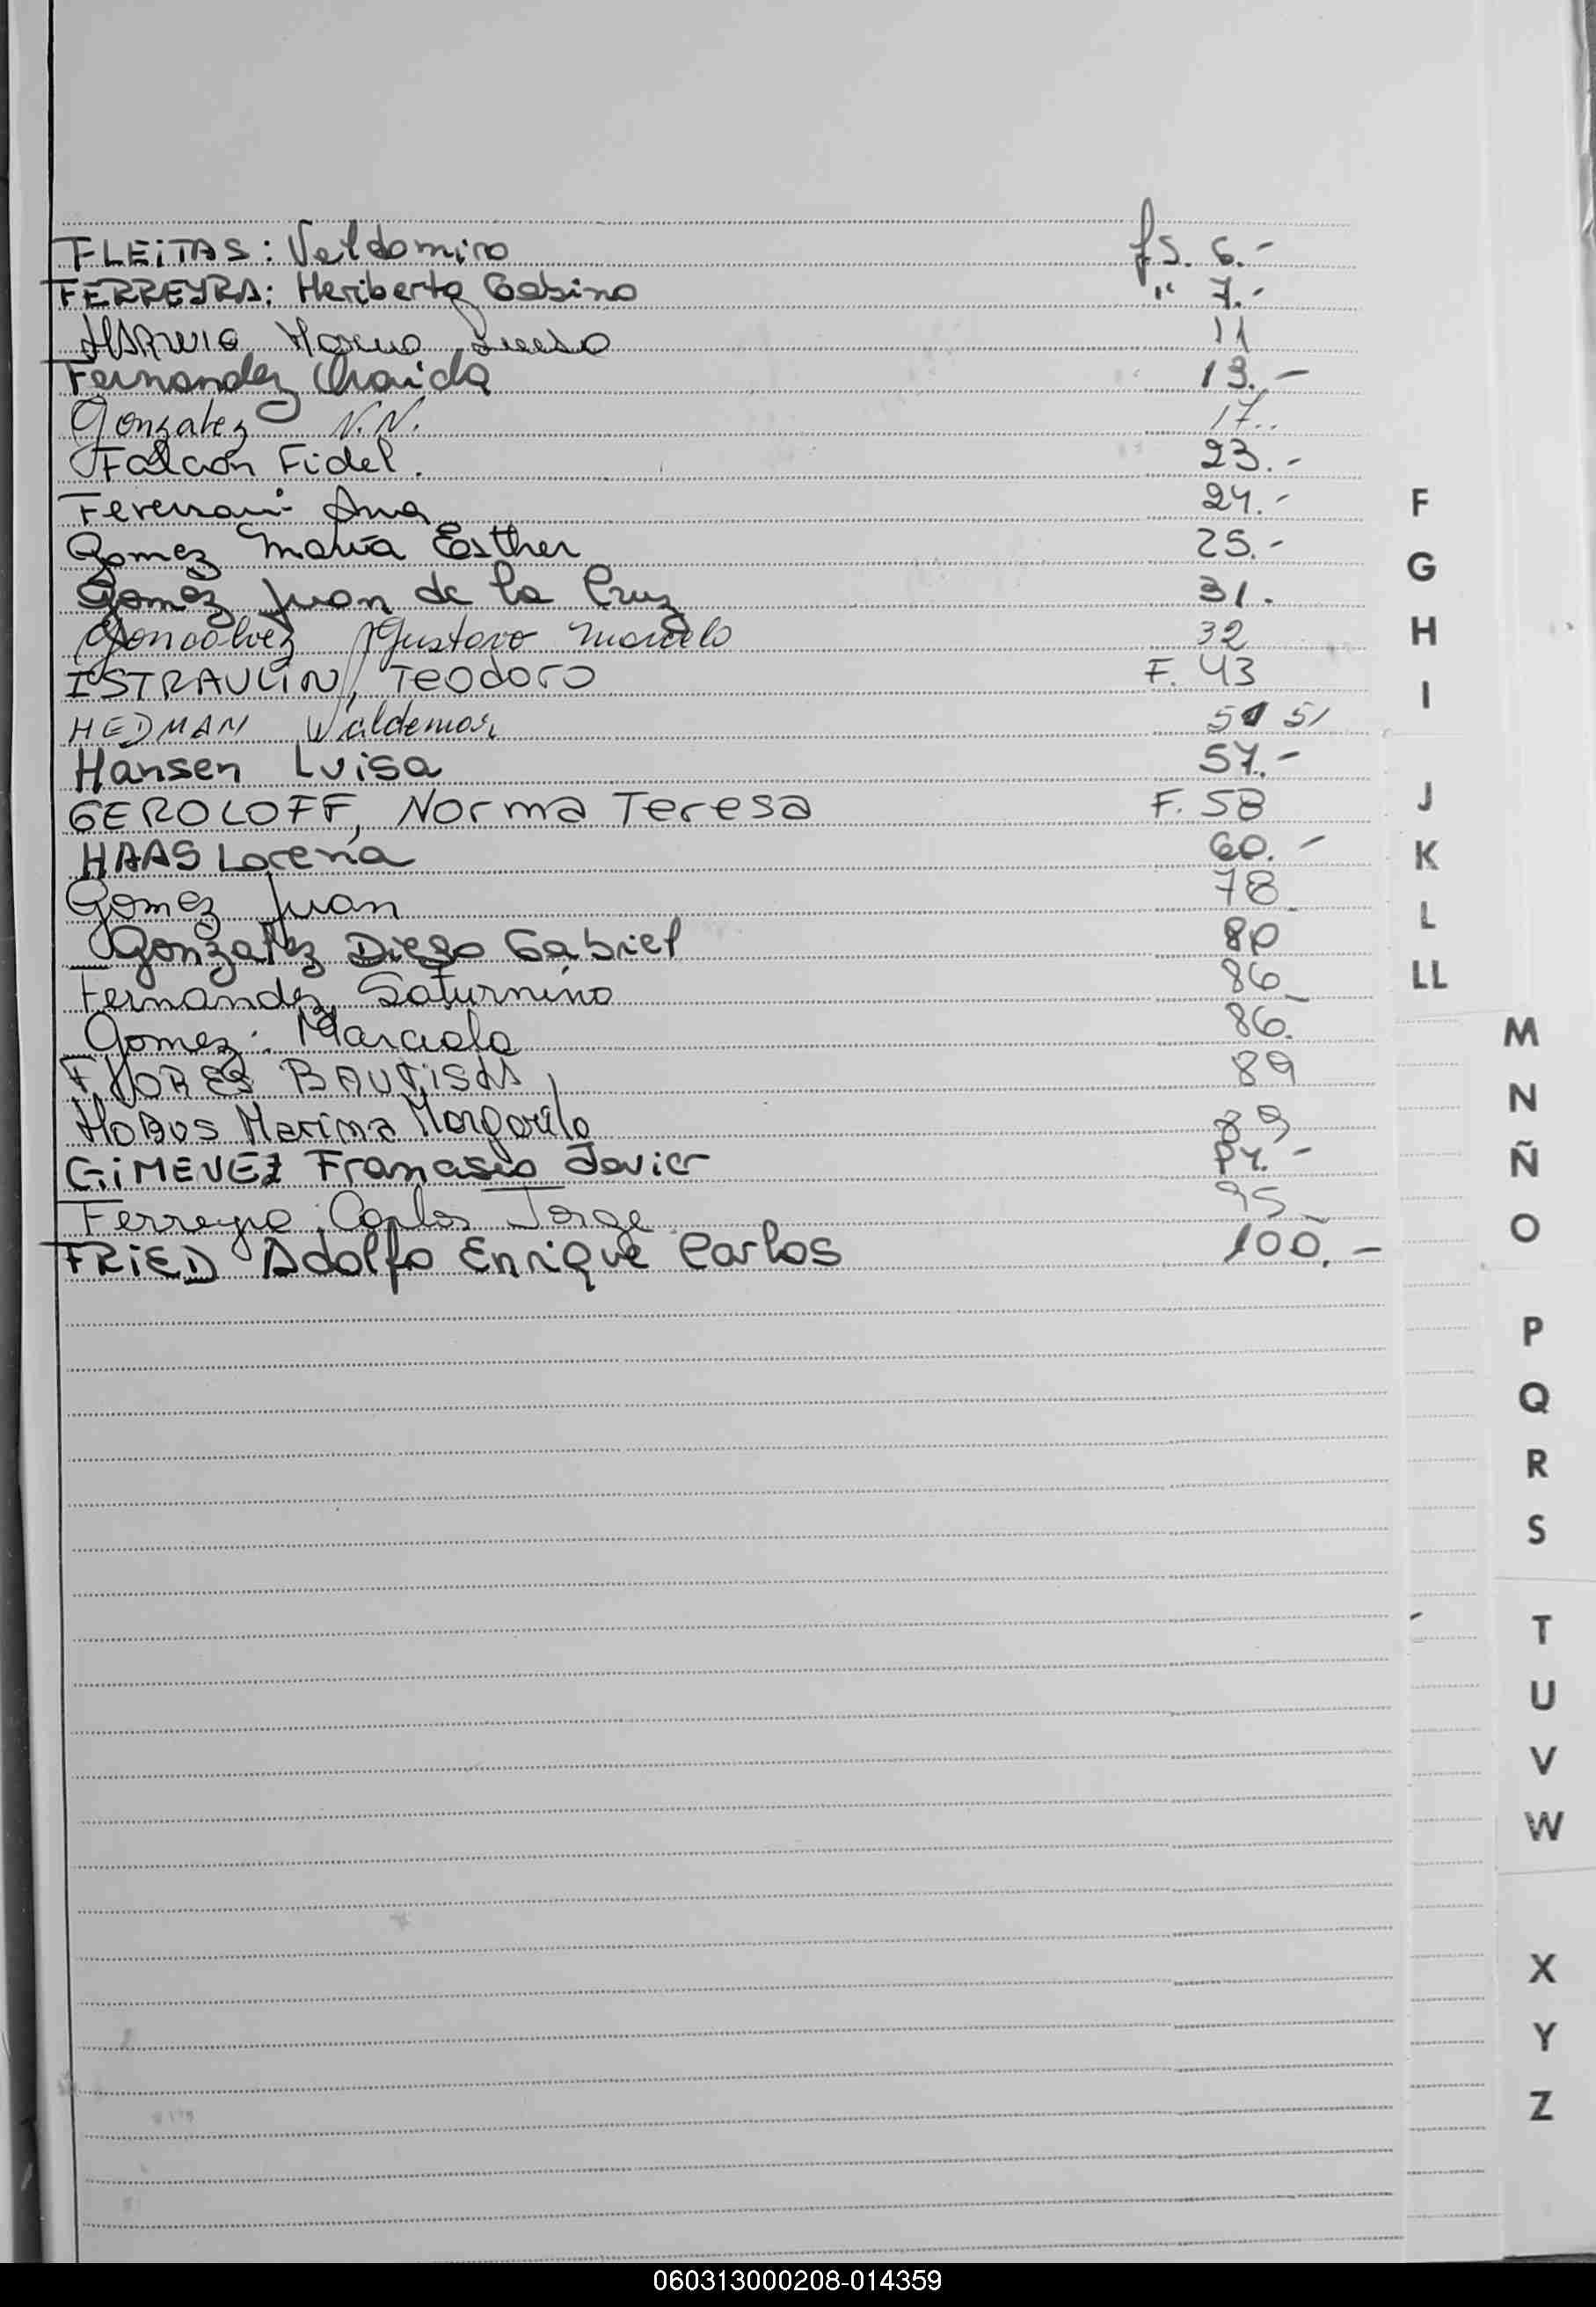 FLEiTAS: Valdomiro fs. 6.-
FERREYRA: Heriberto Gabino " 7.-
11
Fernandez 13.-
Gonzalez N.N. 17..
Falcon Fidel. 23.-
Ana 24.-
Gomez María Esther 25.-
Gomez Juan de la Cruz 31.
Goncalvez Gustavo Marcelo 32
ISTRAULIN, Teodoro F. 43
HEDMAN Waldemar 51
Hansen Luisa 57.-
GEROLOFF, Norma Teresa F. 58
HAAS Lorena 60.-
Gomez Juan 78
Gonzalez Diego Gabriel 80
Fernandez, Saturnino 86
Gomez: Marciala 86.
FLORES BAUTISTA 89
HOBUS Marina Margarita 89
GiMENEZ Francisco Javier -
Ferreyra Carlos Jorge 95
FRiED Adolfo Enrique Carlos 100.-
F
G
H
I
J
K
L
LL
M
N
Ñ
O
P
Q
R
S
T
U
V
W
X
Y
Z
060313000208-014359